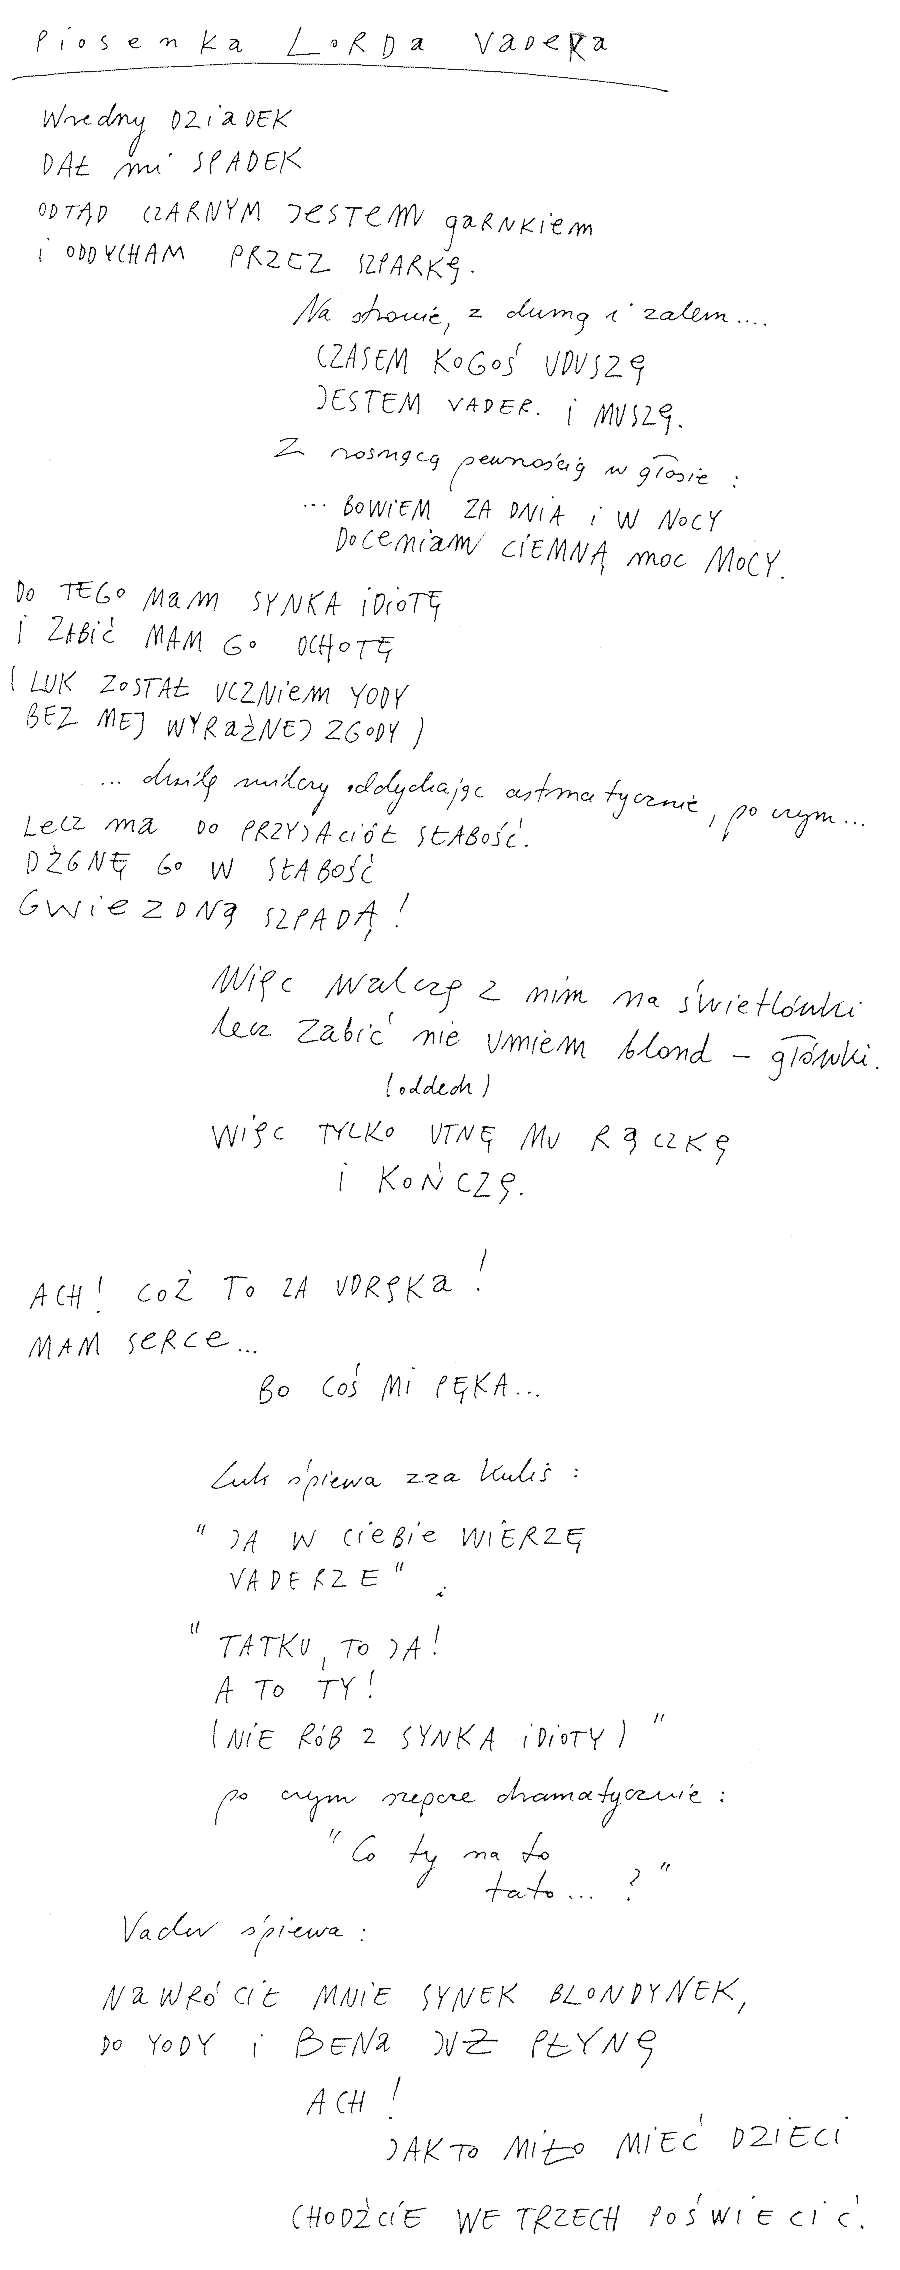 Piosenka Lorda Vadera
Wredny DZiaDEK
DAŁ mi SPADEK
ODTĄD CZARNYM JESTEM gaRNKiem
i ODDYCHAM PRZEZ SZPARKĘ.
Na stronie, z dumą i żalem....
CZASEM KOGOŚ UDUSZĘ
JESTEM VADER. i MUSZĘ.
Z rosnącą pewnością w głosie :
... BOWIEM ZA DNIA i W NOCY
DOCENIAM CIEMNĄ moc MOCY.
DO TEGO MAM SYNKA iDiOTĘ
i ZABIĆ MAM GO OCHOTĘ
( LUK ZOSTAŁ UCZNIEM YODY
BEZ MEJ WYRAŹNEJ ZGODY )
... chwilę milczy oddychając astmatycznie, po czym...
Lecz ma DO PRZYJACIÓŁ SŁABOŚĆ.
DŹGNĘ GO W SŁABOŚĆ
GWiEZDNĄ SZPADĄ !
Więc walczę z nim na świetlówki
lecz zabić nie umiem blond - główki.
(oddech)
WIĘC TYLKO UTNĘ MU RĄCZKĘ
i KOŃCZĘ.
ACH ! COŻ TO ZA UDRĘKa !
MAM SERCE...
BO COŚ MI PĘKA...
Luk śpiewa zza kulis :
" JA W CIEBIE WIERZĘ
VADERZE" i
" TATKU, TO JA!
A TO TY !
(NIE RÓB Z SYNKA iDiOTY ) "
po czym szepcze dramatycznie :
" Co ty na to
tato... ? "
Vader śpiewa :
NAWRÓCIŁ MNIE SYNEK BLONDYNEK,
DO YODY i BENa JUŻ PŁYNĘ
ACH !
JAK TO MIŁO MIEĆ DZIECI
CHODŹCIE WE TRZECH POŚWIECIĆ.